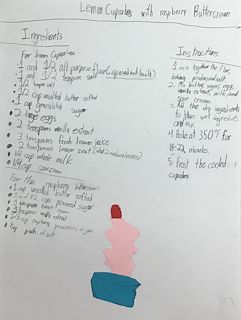 Lemon Cupcakes with raspberry Buttercream
Ingredients
For lemon Cupcakes:
1 and 1/2 all purpose flour
1 and 1/2 teaspoon salt
1/2 cup unsalted butter softed
1 cup granulated sugar
2 large eggs
2 teaspoons vanilla extract
teaspoons fresh lemon juice
2 teaspoons lemon zest
1/2 cup whole milk
1/4 cup sour cream
For the raspberry buttercream:
1 cup unsalted butter softed
3 and 1/2 cups powered sugar
vanilla extract
1 pinch of salt
Instructions
1. mix together the flour,
baking powder and salt
2. Mix butter, sugar, eggs,
vanilla extract, milk, and
sour cream.
3. Add the dry ingredients
to the wet ingredients
and mix.
4. Bake at 350°F for
18-22 minutes.
5. Frost the cooled
cupcakes